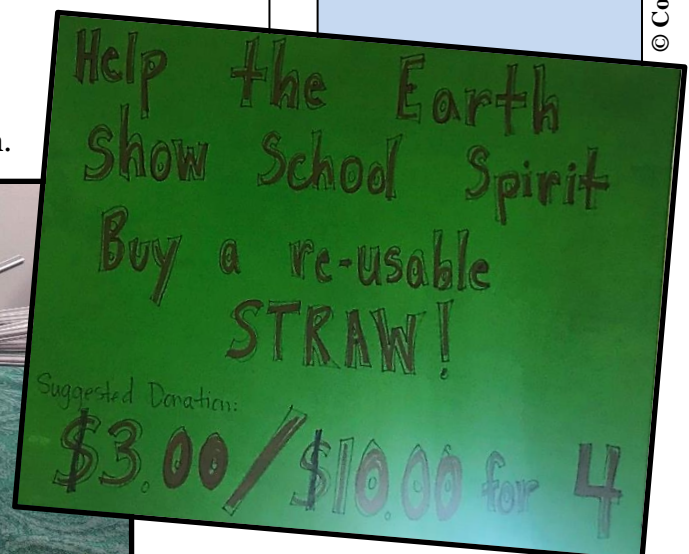 © Co
Help the Earth
Show School Spirit
Buy a re-usable
STRAW!
Suggested Donation:
$3.00/$10.00 for 4